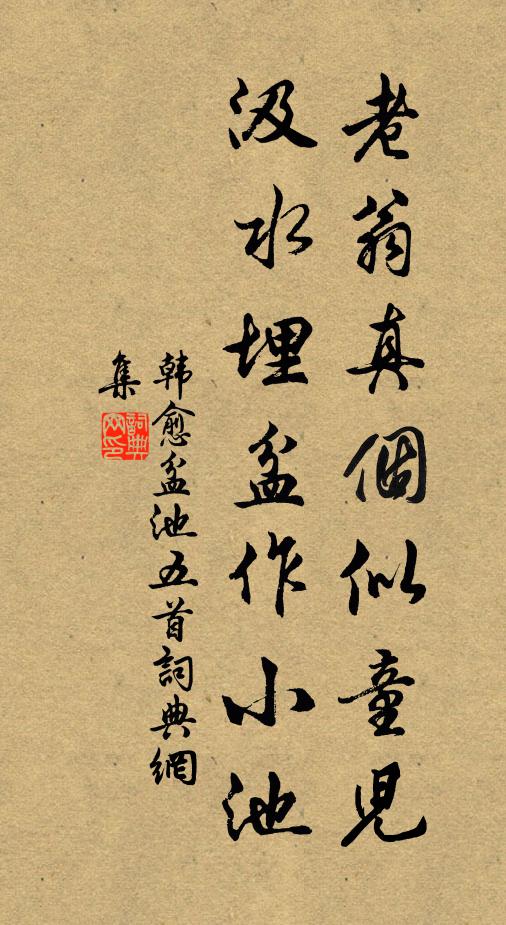 老翁真個似童兒
汲水埋盆作小池
韩愈盆池五首詞典網
集
詞典網印